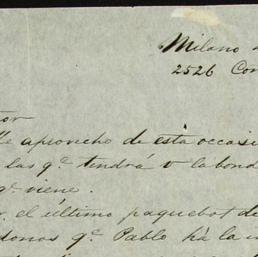 Milano
2526 Con
tor
Me aprovecho de esta occasi
las q.e tendrá V la bond
q.e viene.
el último paquebot de
donos q.e Pablo há la